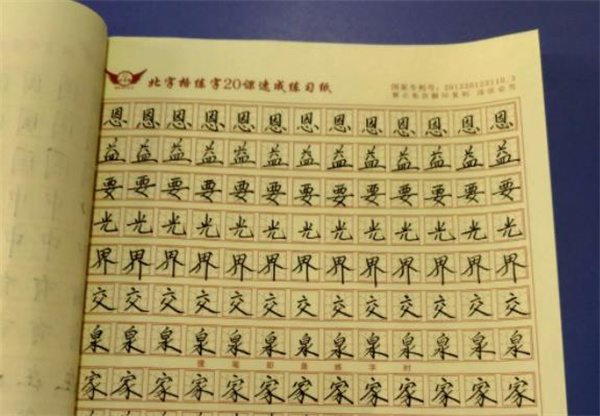 北字格练字20课速成练习纸
恩恩恩恩恩恩恩恩恩恩恩恩恩
益益益益益益益益益益益益益
要要要要要要要要要要要要要
光光光光光光光光光光光光光
界界界界界界界界界界界界界
交交交交交交交交交交交交交
泉泉泉泉泉泉泉泉泉泉泉泉泉
提笔即是练字时
家家家家家家家家家家家家家